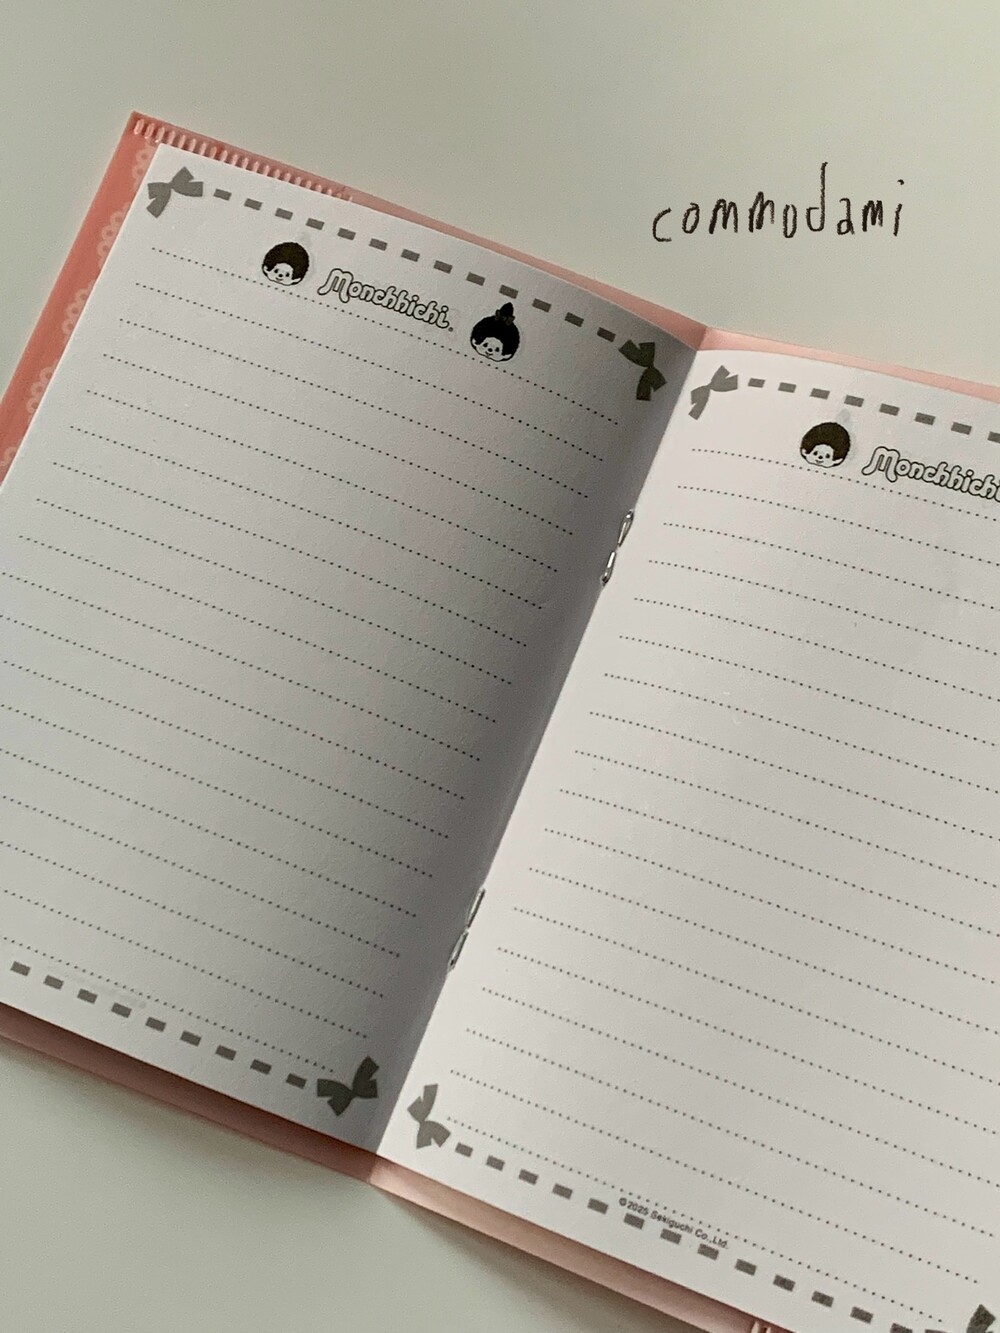 commodami
Monchhichi
Monchhichi
©2025 Sekiguchi Co.,Ltd.